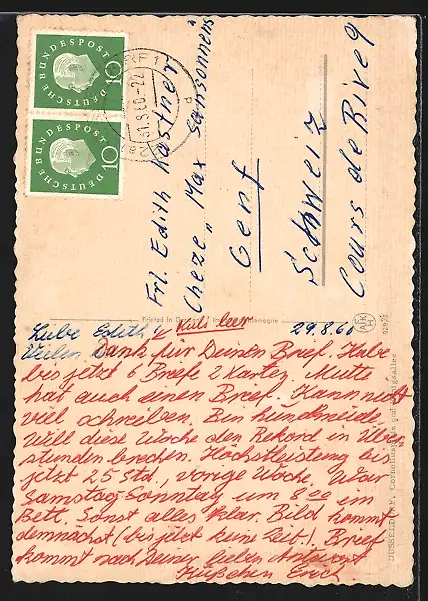 DEUTSCHE BUNDESPOST
10
DEUTSCHE BUNDESPOST
10
Frl. Edith Kastner
Cheze „Max Sansonnens
Genf
Schweiz
Cours de Rive 9
Printed in Germany
AFKH
DÜSSELDORF, Corneliusplatz und Königsallee
Liebe Edith! Kuli leer 29.8.60
Vielen Dank für Deinen Brief. Habe
bis jetzt 6 Briefe 2 Karten. Mutti
hat auch einen Brief. Kann nicht
viel schreiben. Bin hundemüde,
will diese Woche den Rekord in Über-
stunden brechen. Höchstleistung bis
jetzt 25 Std., vorige Woche. War
Samstag-Sonntag um 8 00 im
Bett. Sonst alles klar. Bild kommt
demnächst (bis jetzt keine Zeit). Brief
kommt nach Deiner lieben Antwort
Küßchen Erich